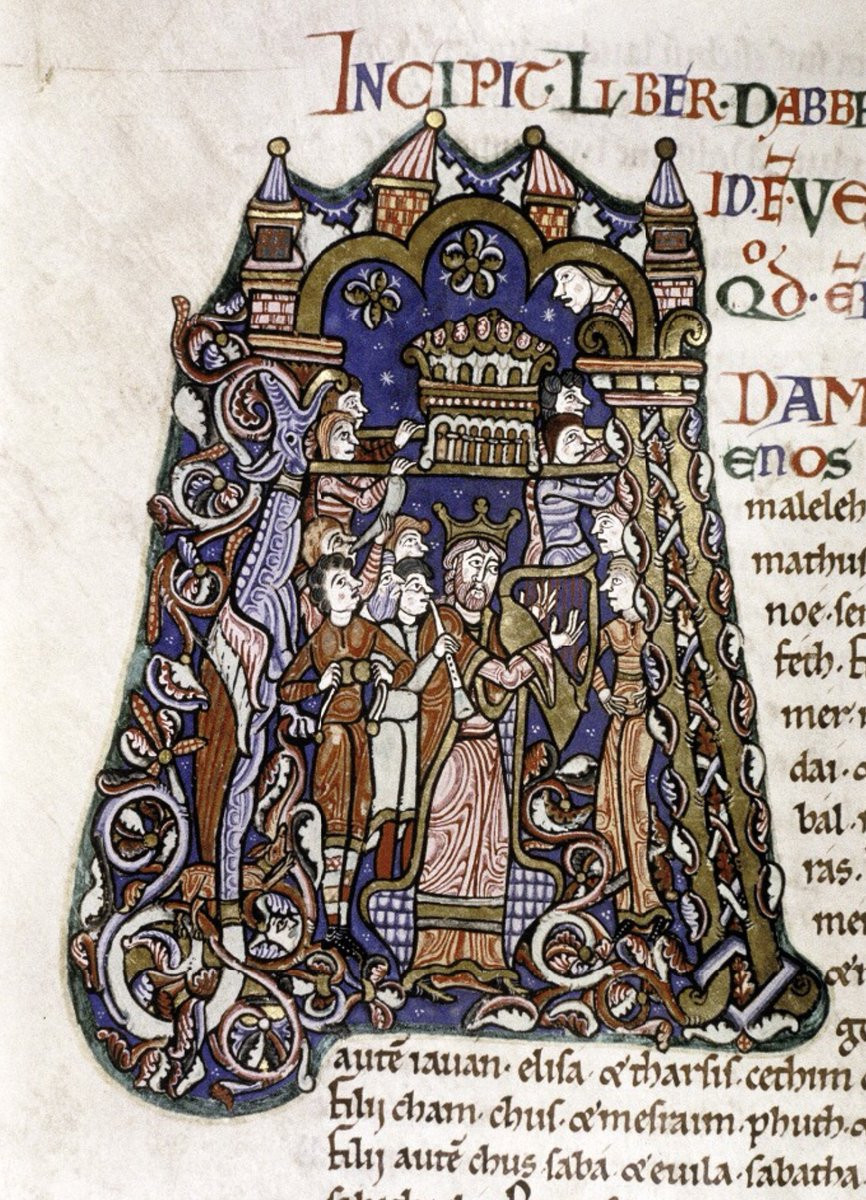 INCIPIT·LIBER·DABBRE
ID·Ē·VE
Qd·ē
DAM
ENOS
maleleh
mathus
noe·sem
fech·
mer·
dai·
bal·
ras·
mer
&
go
autē iauan· elisa· & tharsis· cethim
filij cham· chus· & mesraim· phuth· &
filij autē chus· saba· & euila· sabatha